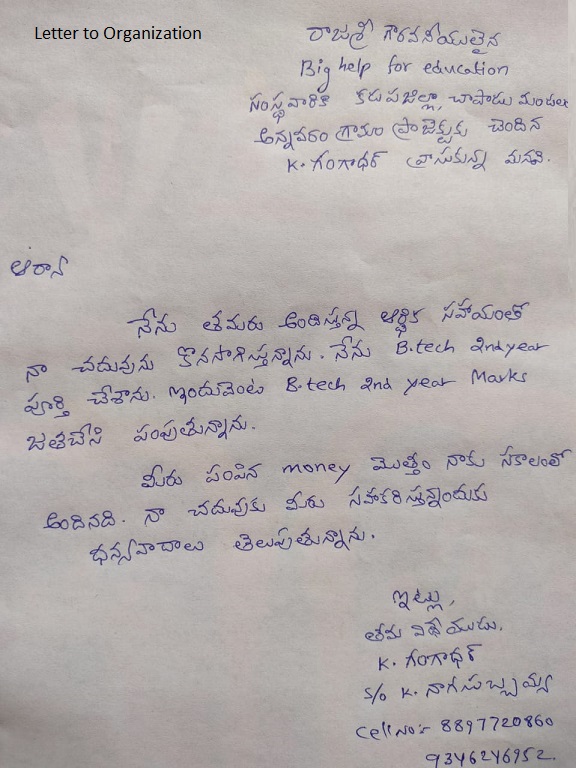 Letter to Organization
రాజశ్రీ గౌరవనీయులైన
Big help for education
సంస్థవారికి కడపజిల్లా, చాపాడు మండలం
అన్నవరం గ్రామం ప్రాజెక్టుకు చెందిన
K. గంగాధర్ వ్రాసుకున్న మనవి.
ఆర్యా
నేను తమరు అందిస్తున్న ఆర్థిక సహాయంతో
నా చదువును కొనసాగిస్తున్నాను. నేను B.tech 2nd year
పూర్తి చేశాను. ఇందువెంట B.tech 2nd year Marks
జతచేసి పంపుతున్నాను.
మీరు పంపిన money మొత్తం నాకు సకాలంలో
అందినది. నా చదువుకు మీరు సహకరిస్తున్నందుకు
ధన్యవాదాలు తెలుపుతున్నాను.
ఇట్లు,
తమ విధేయుడు.
K. గంగాధర్
S/o K. నాగసుబ్బయ్య
Cell No:- 8897720860
9346246952.